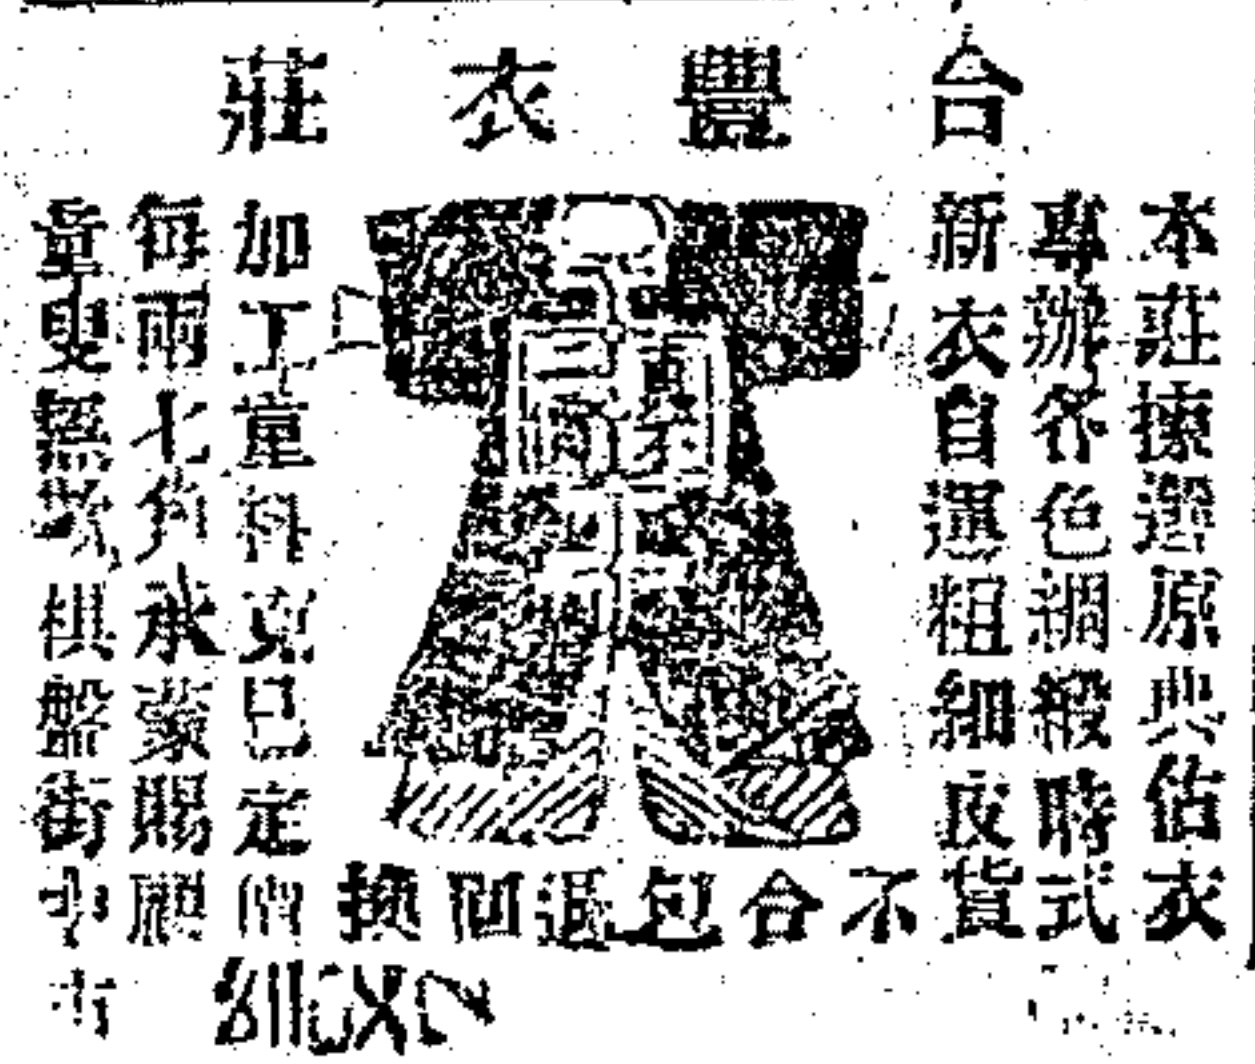 台豐衣莊
本莊揀選原典估衣
專辦各色綢緞時式
新衣自運粗細皮貨
不合包退回換
加工 料 已定價
每兩七角承蒙賜顧
童叟 欺棋盤街中市